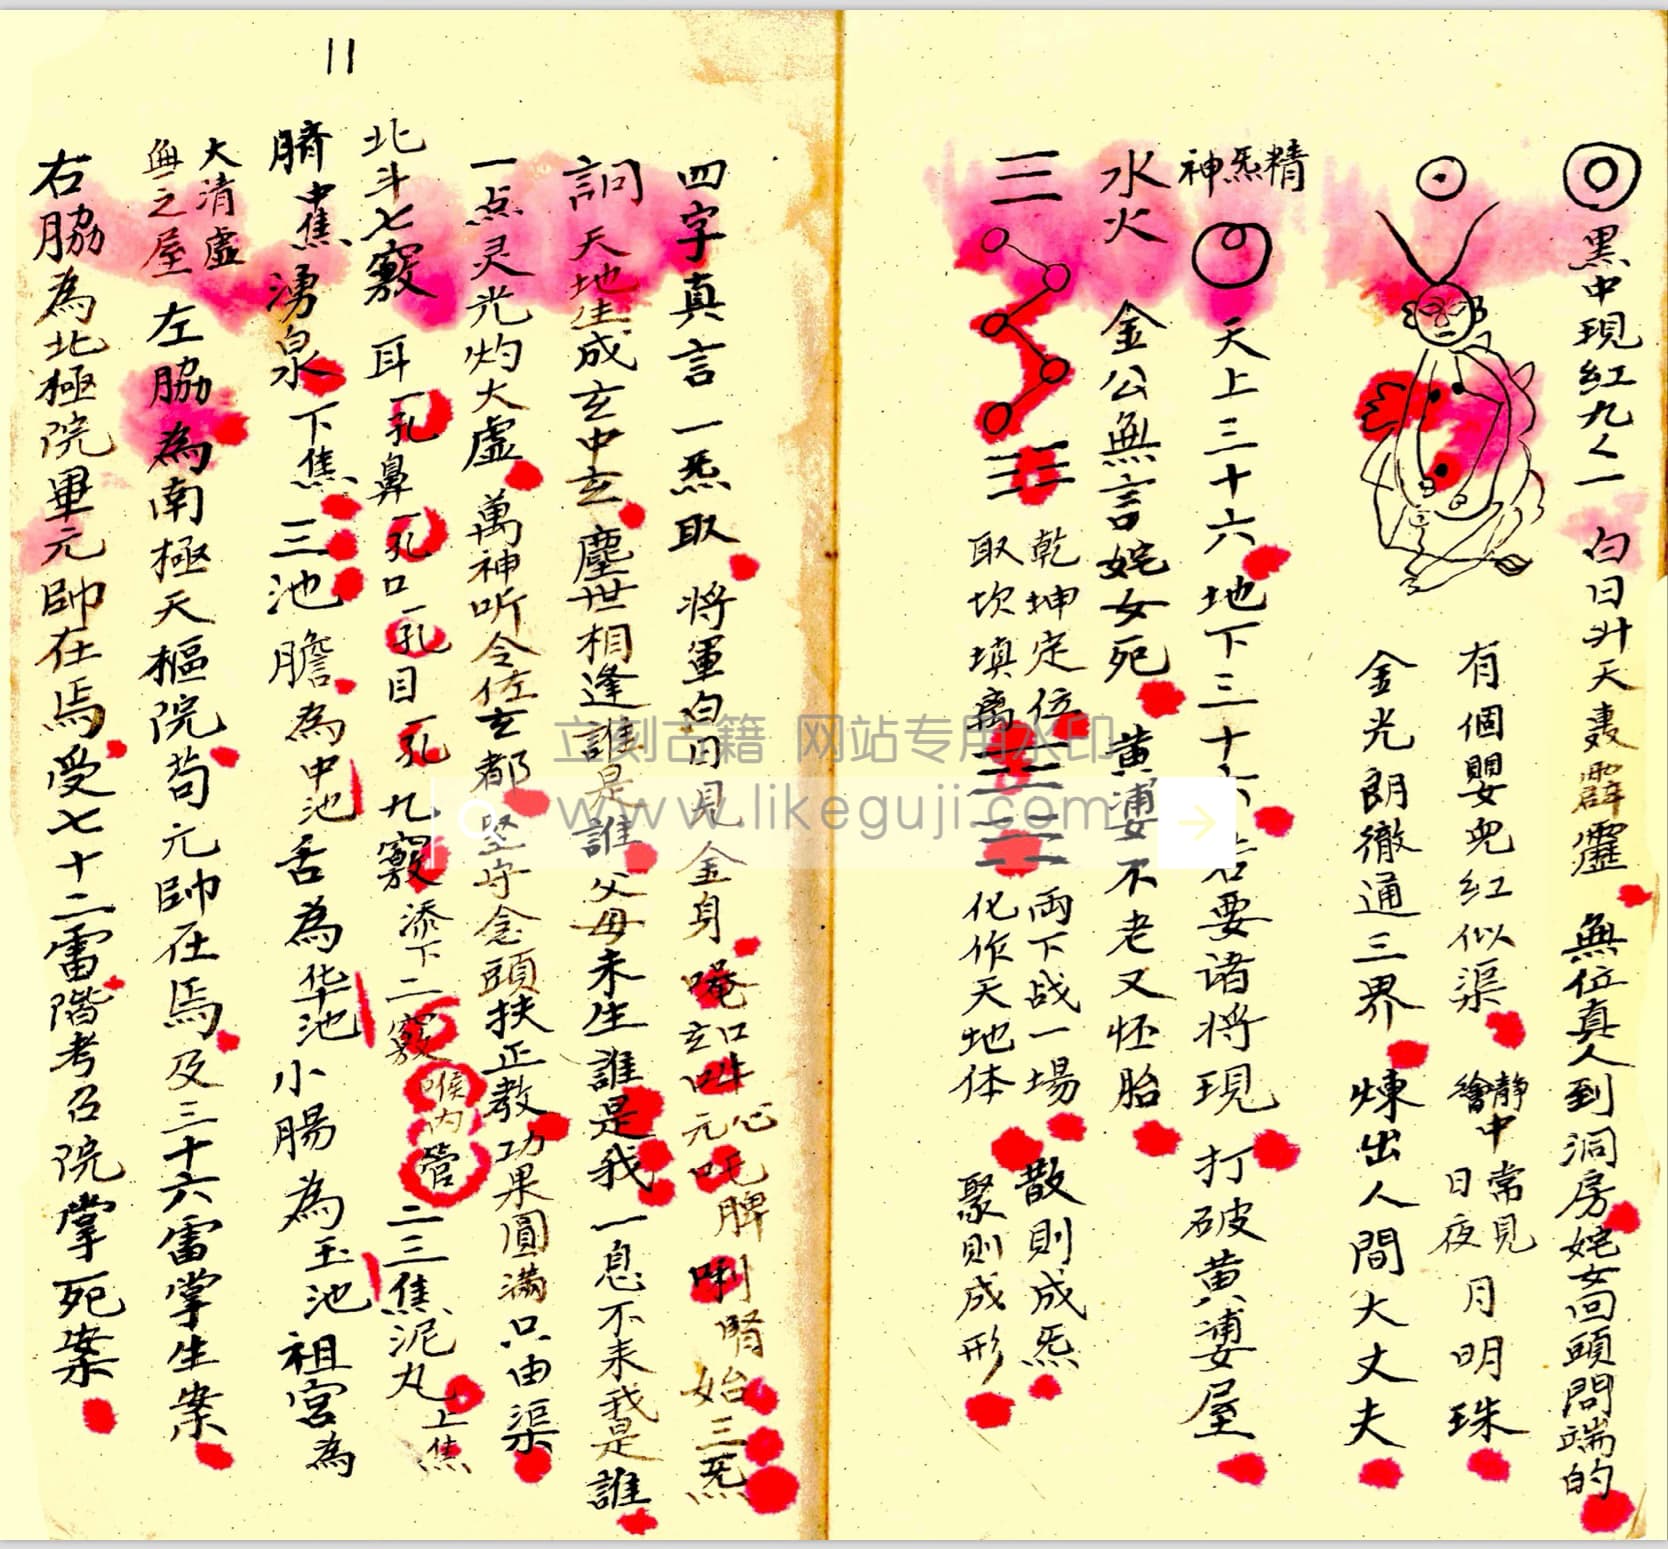 黒中現紅九く一 白日升天轟霹靂 無位真人到洞房姹女回頭問端的
有個嬰兒紅似渠 靜中常見繪日夜月明珠
金光朗徹通三界 煉出人間大丈夫
精炁神 天上三十六 地下三十六 若要诸将現 打破黄婆屋
水火 金公無言姹女死 黄婆不老又怀胎
三 乾坤定位 両下战一場 散則成炁
取坎填离 化作天地体 聚則成形
四字真言一炁取 将軍白日見金身 唵玄口吽元心吒脾唎腎始三炁
詞 天地生成玄中玄 塵世相逢誰是誰 父母未生誰是我 一息不来我是誰
一点灵光灼大虚 萬神听令佐玄都 坚守念頭扶正教 功果圓满只由渠
北斗七竅 耳一孔鼻一孔口一孔目一孔九竅添下二竅 喉内管 二三焦泥丸上焦
臍中焦湧泉下焦 三池 膽為中池舌為华池小腸為玉池祖宮為
大清虚無之屋 左脇為南極天樞院苟元帥在焉及三十六雷掌生案
右脇為北極院畢元帥在焉受七十二雷階考召院掌死案
立刻古籍 网站专用水印
www.likeguji.com